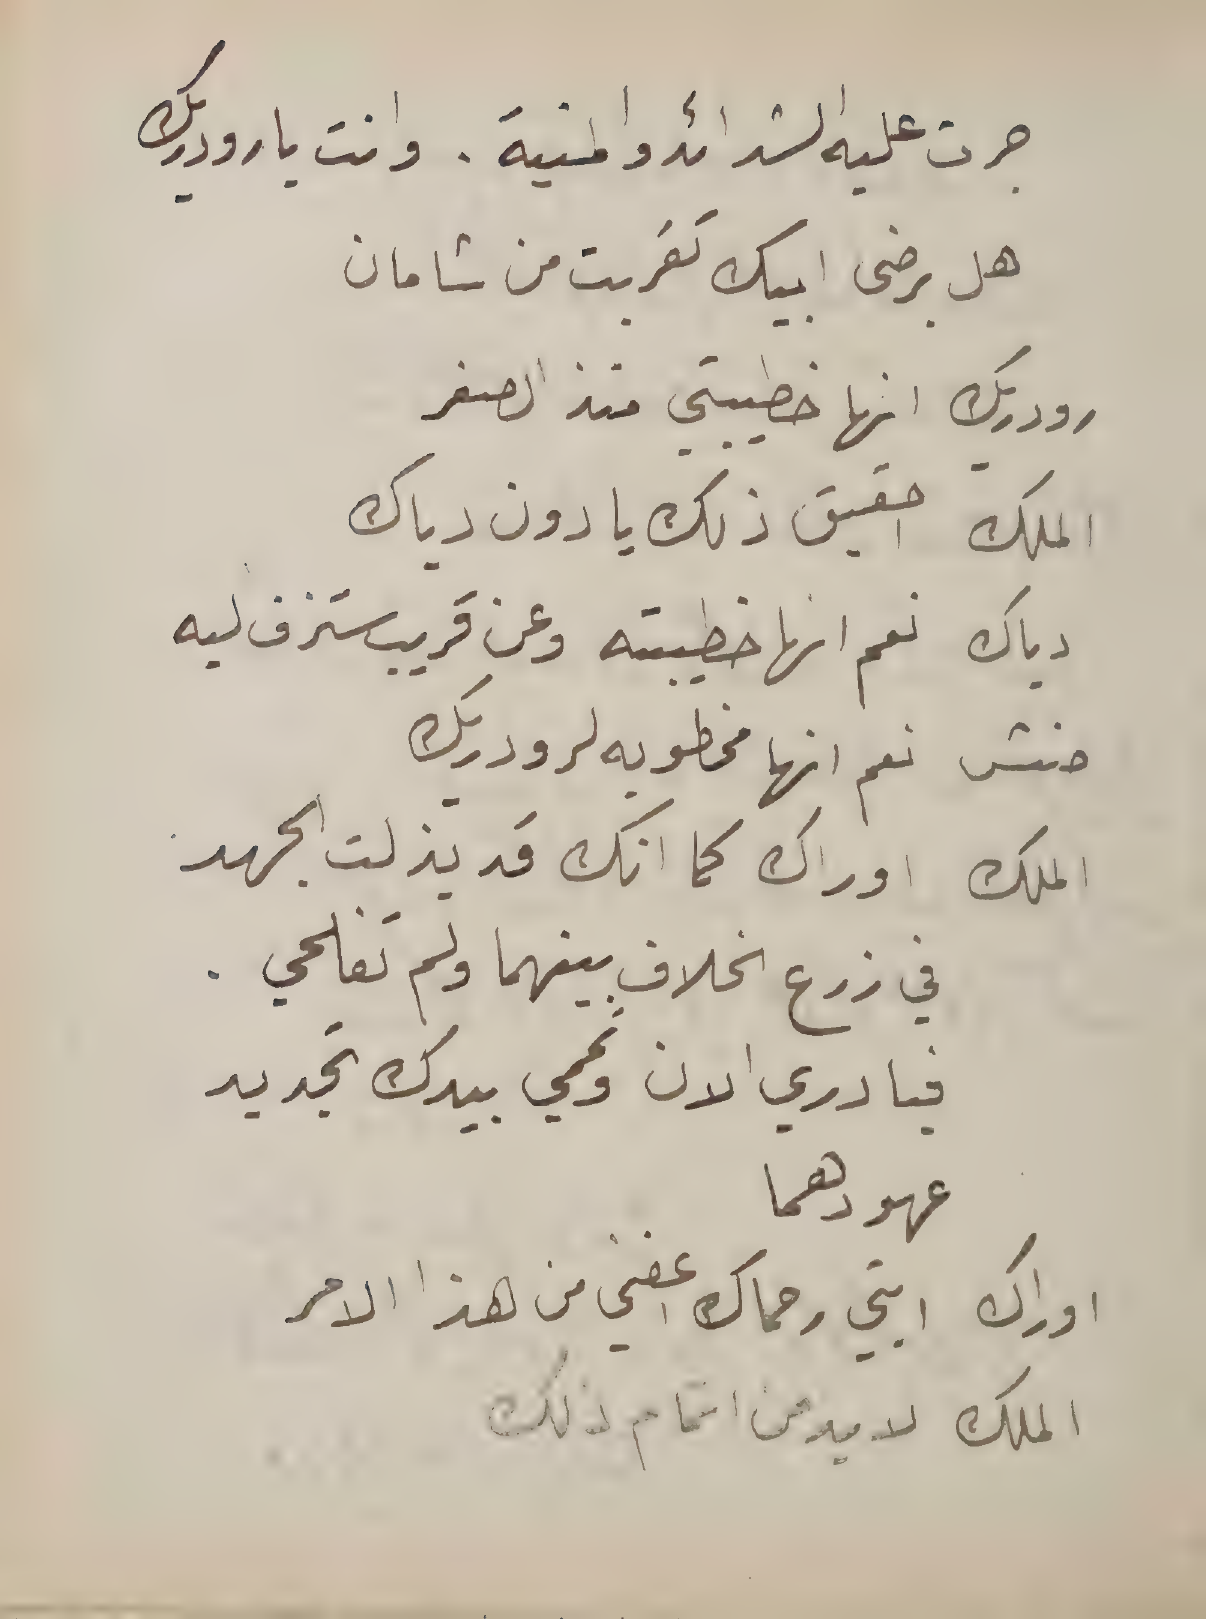 جرت عليه الشدائد والمنية . وانت يا رودريك
هل برضى ابيك تقربت من شامان
رودريك انها خطيبتي منذ الصغر
الملك احقيق ذلك يا دون دياك
دياك نعم انها خطيبته وعن قريب ستزف ليه
صنش نعم انها مخطوبه لرودريك
الملك اوراك كما انك قد بذلت الجهد
في زرع الخلاف بينهما ولم تفلحي .
فبادري الان وتممي بيدك تجديد
عهودهما
اوراك ابتي رحماك اعفني من هذا الامر
الملك لا بد من اتمام ذلك